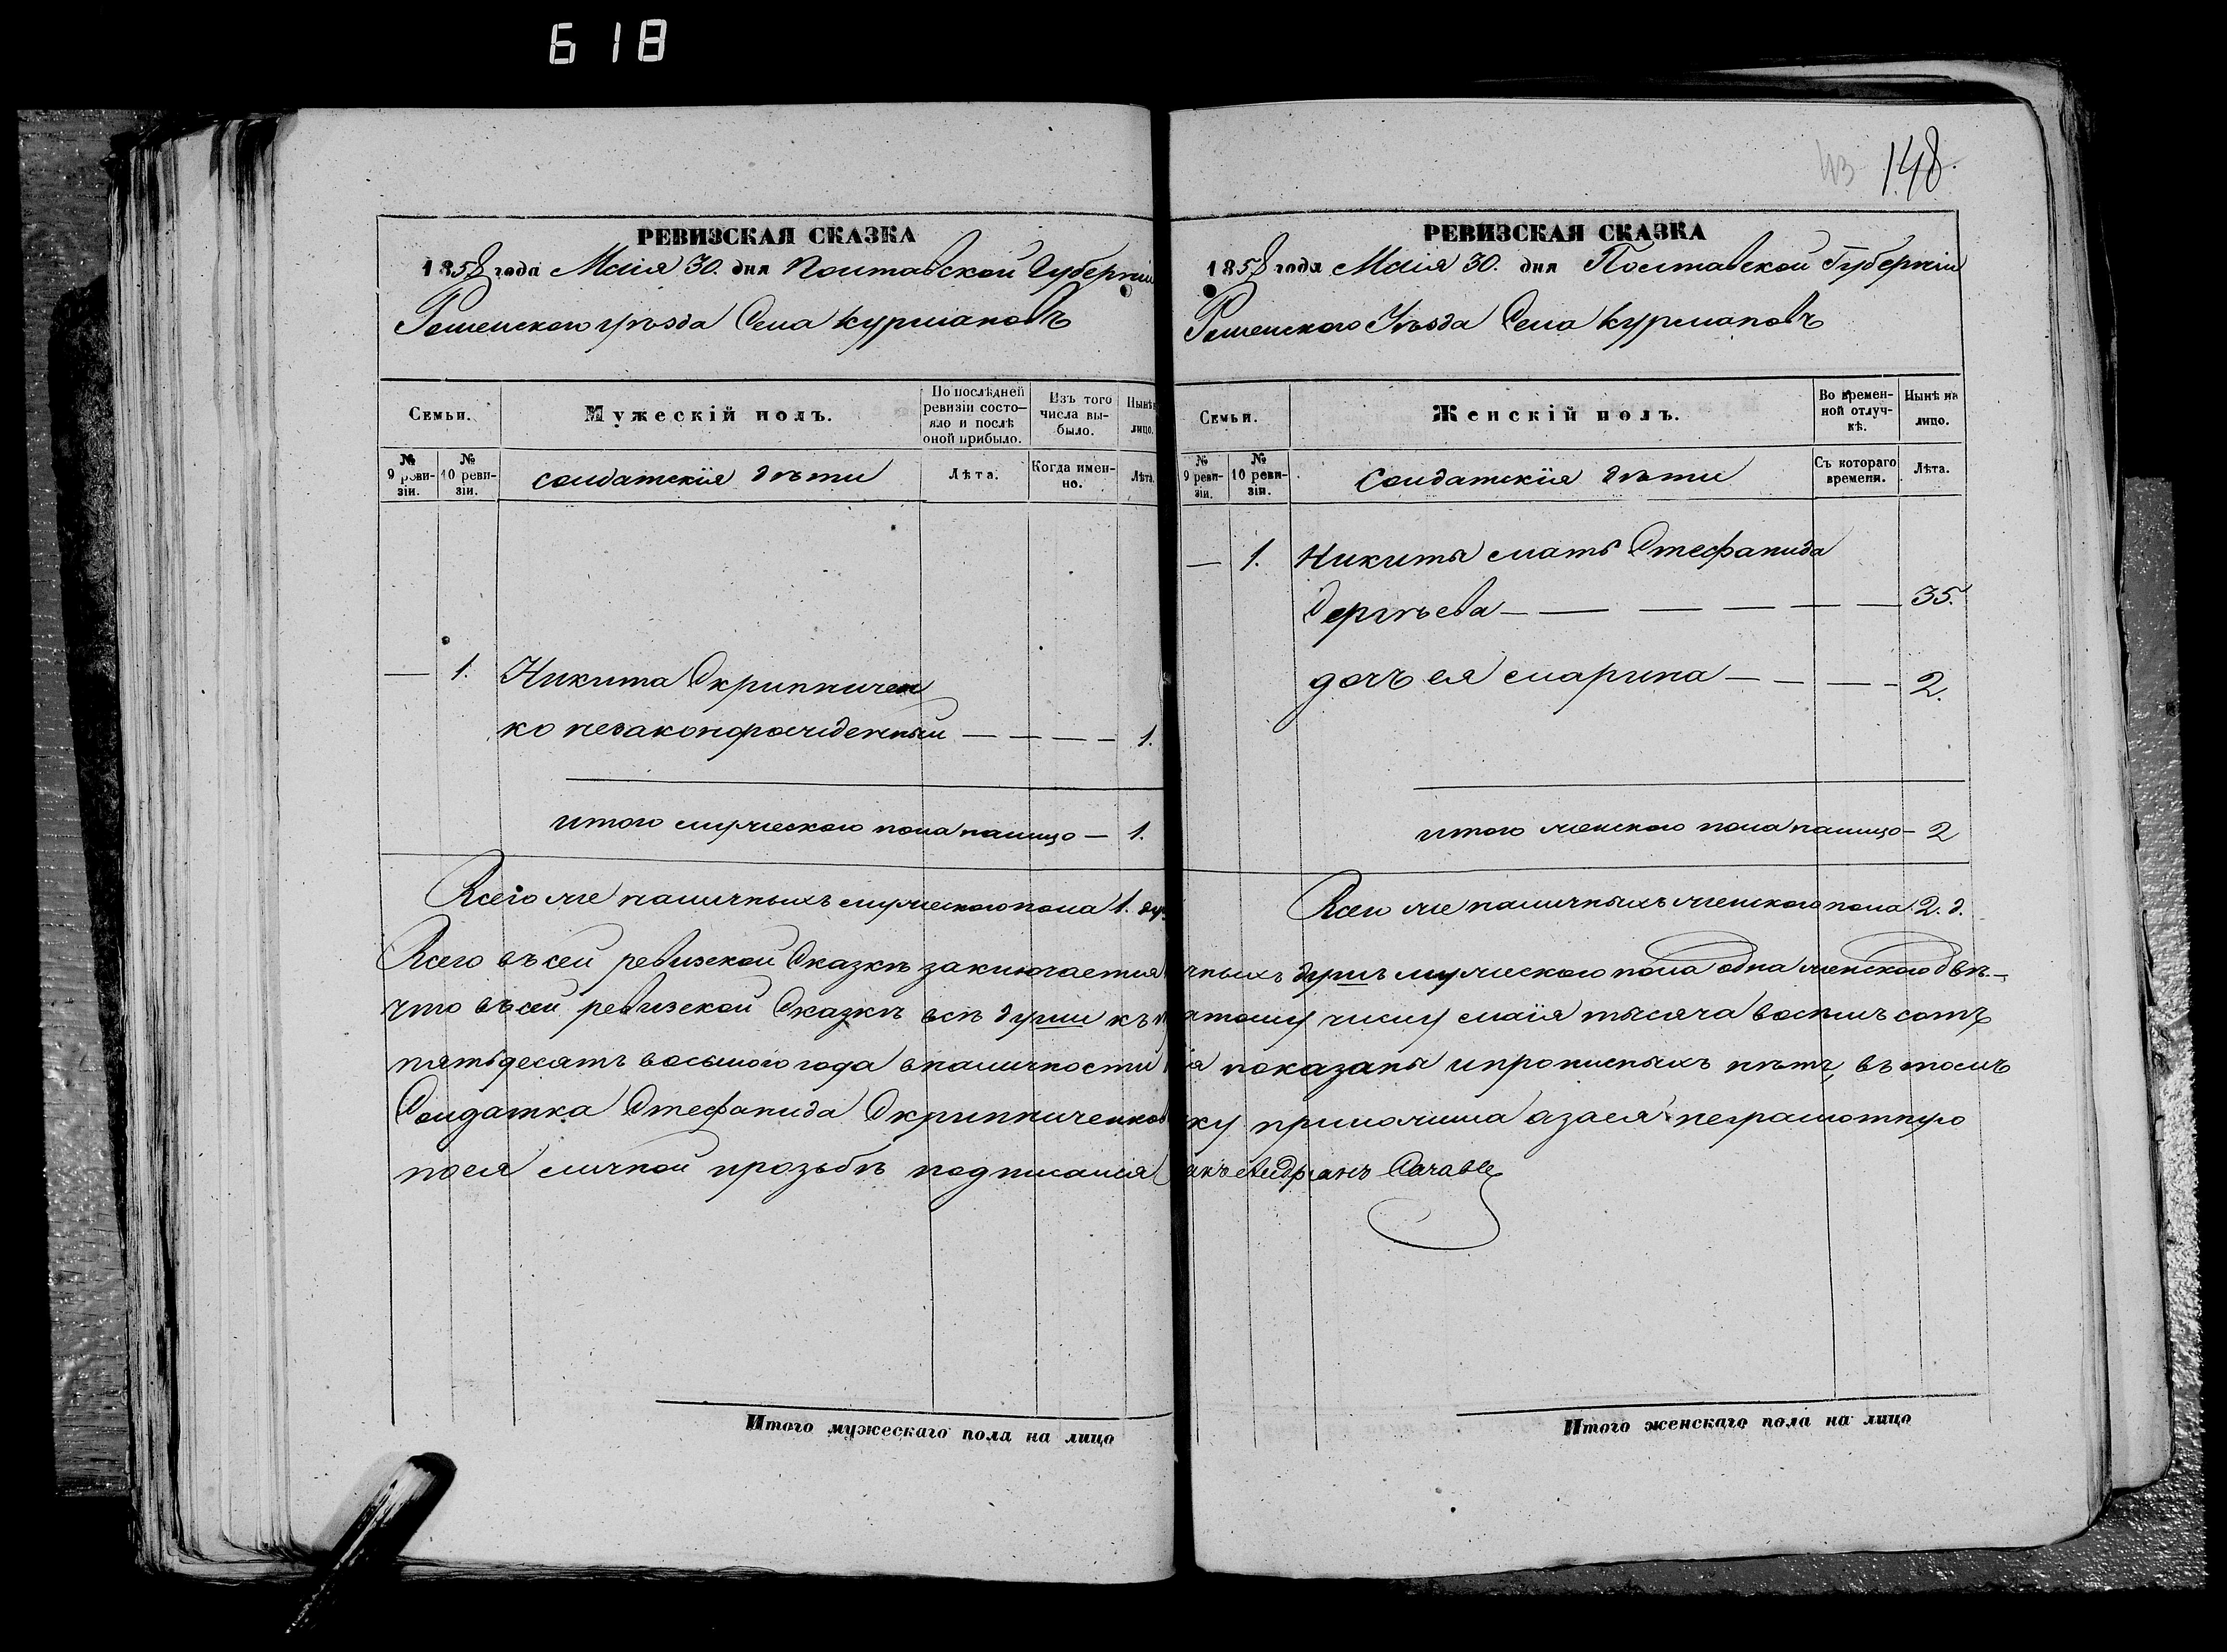 618
43 148.
РЕВИЗСКАЯ СКАЗКА
1858 года Маія 30. дня Полтавской Губерніи
Роменского уѣзда Села Курмановъ
Семьи.
Мужескій полъ.
По послѣдней ревизіи состояло и послѣ оной прибыло.
Изъ того числа выбыло.
Нынѣ лицо.
№ 9 ревизіи.
№ 10 ревизіи.
солдатскія дѣти
Лѣта.
Когда именно.
Лѣта.
— 1. Никита Скрипничен
ко незаконорожденный — — — — 1.
итого мужеского пола налицо — 1.
Всего же наличныхъ мужеского пола 1. ду.
РЕВИЗСКАЯ СКАЗКА
1858 года Маія 30. дня Полтавской Губерніи
Роменского Уѣзда Села Курмановъ
Семьи.
Женскій полъ.
Во временной отлучкѣ.
Нынѣ на лицо.
№ 9 ревизіи.
№ 10 ревизіи.
Солдатскія дѣти
Съ котораго времени.
Лѣта.
— 1. Никиты мать Стефанида
Сергѣева — — — — — — 35.
дочъ ея Марина — — — — 2.
итого женского пола налицо — 2
Всего же наличныхъ женского пола 2. д.
Всего въ сей ревизской Сказкѣ заключается чныхъ душъ мужеского пола одна женского двѣ-
что въ сей ревизской Сказкѣ всѣ души къ атому числу маія тысяча восемъ сотъ
пятьдесятъ восьмого года вналичности ія показаны ипрописныхъ нѣтъ, въ томъ
Солдатка Стефанида Скрипниченков ку приложила азаея неграмотную
поея личной прозьбѣ подписался акъ Андріанъ
Итого мужескаго пола на лицо
Итого женскаго пола на лицо